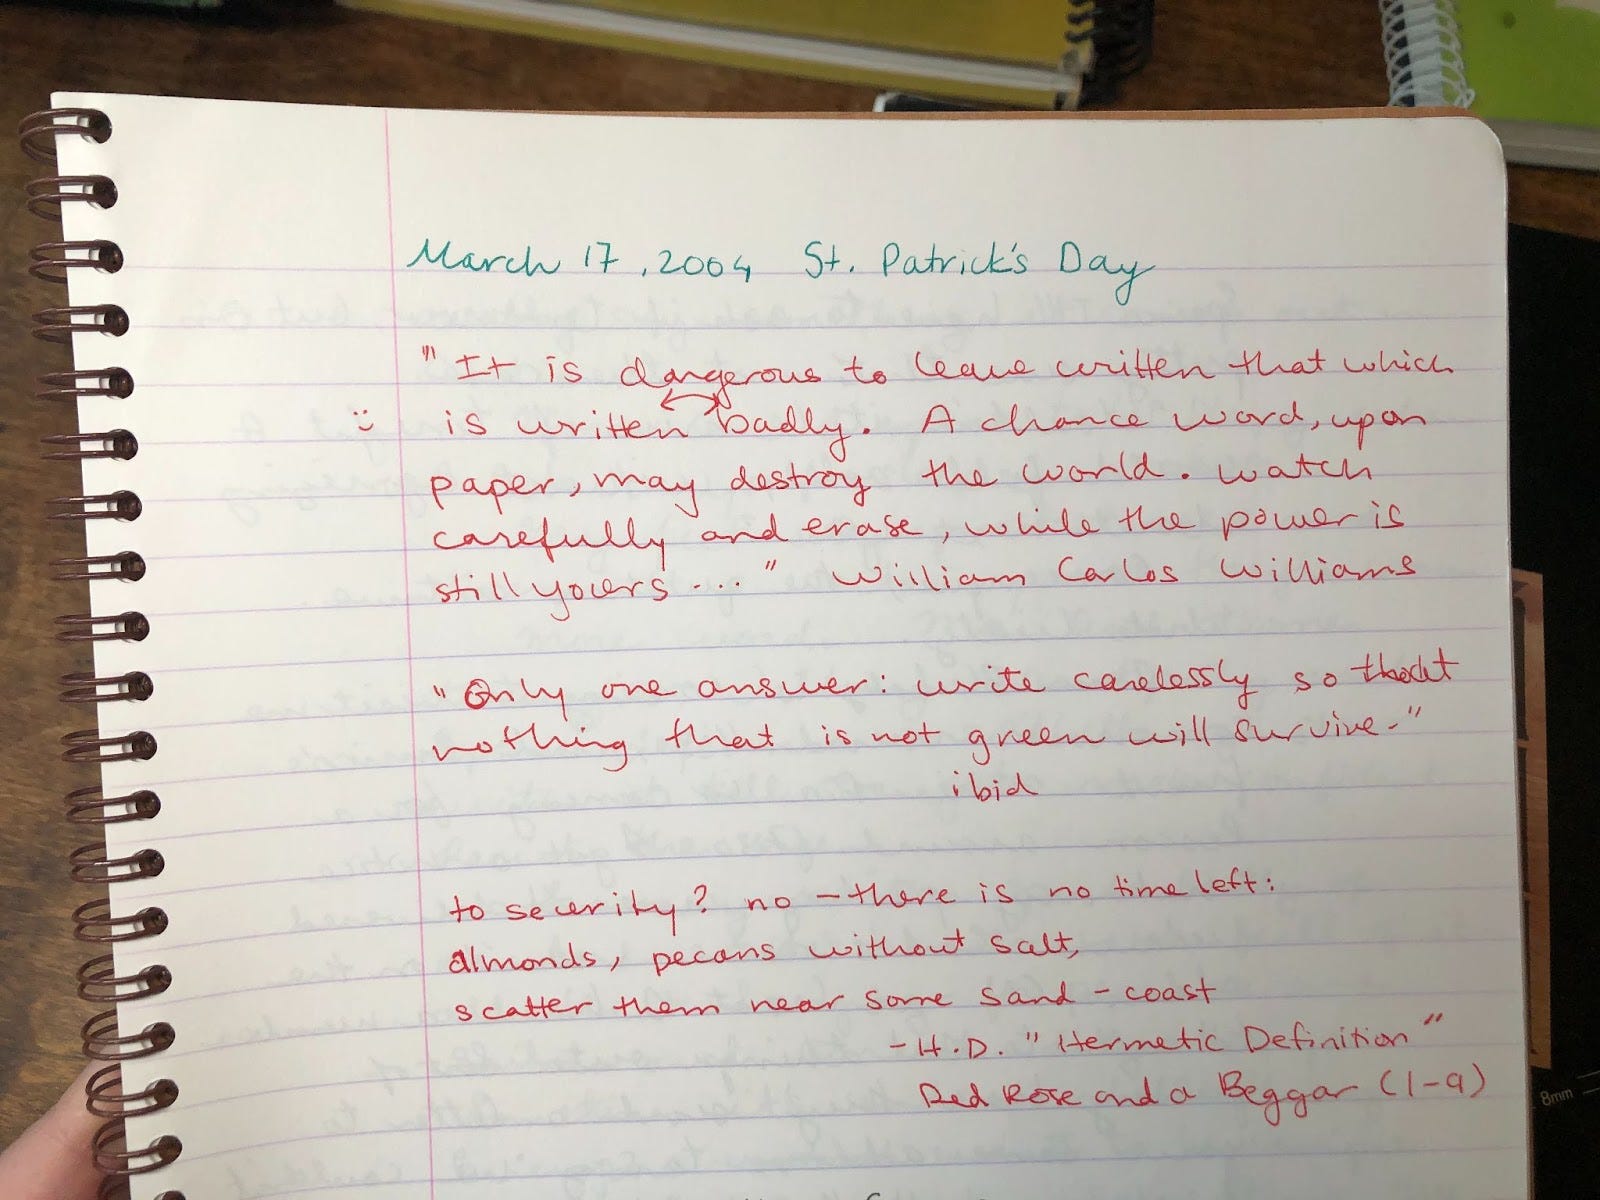 March 17, 2004 St. Patrick's Day
"It is dangerous to leave written that which
is written badly. A chance word, upon
paper, may destroy the world. Watch
carefully and erase, while the power is
still yours ..." William Carlos Williams
"Only one answer: write carelessly so that
nothing that is not green will survive."
ibid
to security? no – there is no time left:
almonds, pecans without salt,
scatter them near some sand-coast
- H.D. "Hermetic Definition"
Red Rose and a Beggar (1-9)
8mm